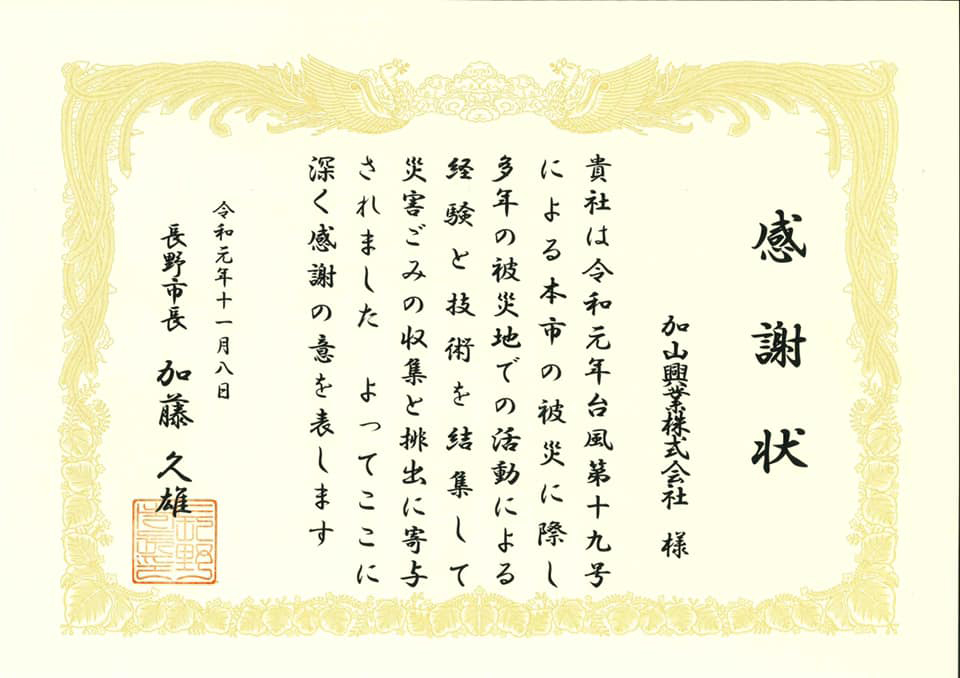 感謝状
加山興業株式会社 様
貴社は令和元年台風第十九号
による本市の被災に際し
多年の被災地での活動による
経験と技術を結集して
災害ごみの収集と排出に寄与
されました よってここに
深く感謝の意を表します
令和元年十一月八日
長野市長 加藤 久雄